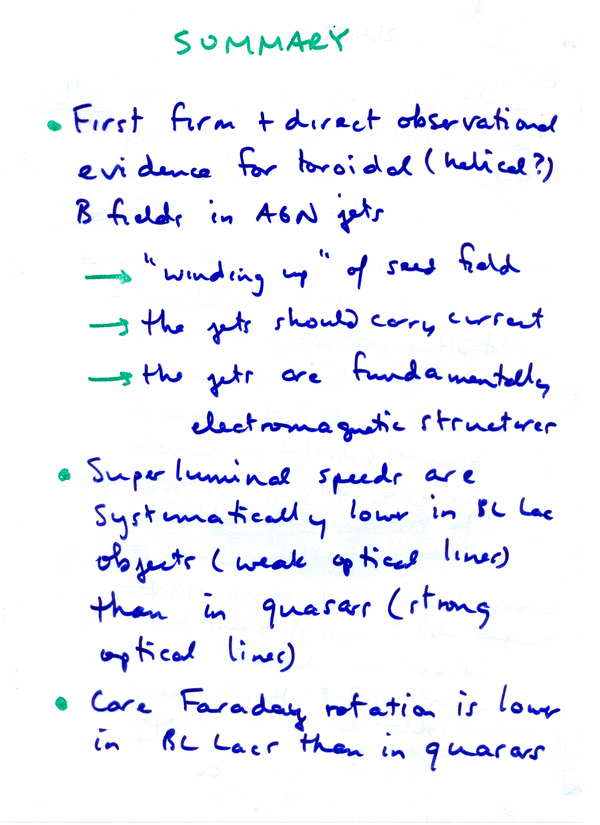 SUMMARY
• First firm + direct observational
evidence for toroidal (helical?)
B fields in AGN jets
→ "winding up" of seed field
→ the jets should carry current
→ the jets are fundamentally
electromagnetic structures
• Superluminal speeds are
systematically lower in BL Lac
objects (weak optical lines)
than in quasars (strong
optical lines)
• Core Faraday rotation is lower
in BL Lacs than in quasars